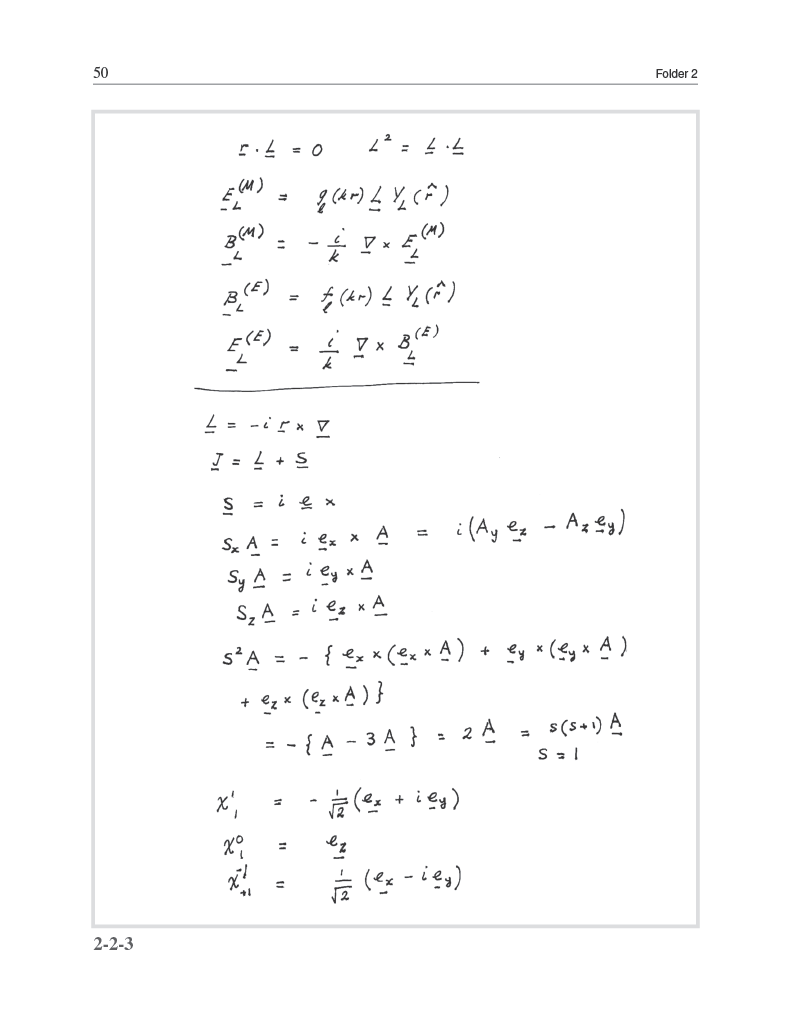 50 Folder 2
r · L = 0 L² = L · L
E_L^(M) = g_ℓ(kr) L Y_L(r̂)
B_L^(M) = - i/k ∇ × E_L^(M)
B_L^(E) = f_ℓ(kr) L Y_L(r̂)
E_L^(E) = i/k ∇ × B_L^(E)
L = -i r × ∇
J = L + S
S = i e ×
S_x A = i e_x × A = i(A_y e_z - A_z e_y)
S_y A = i e_y × A
S_z A = i e_z × A
S² A = - { e_x × (e_x × A) + e_y × (e_y × A)
+ e_z × (e_z × A)}
= - { A - 3 A } = 2 A = s(s+1) A
S = 1
χ_1^1 = - 1/√2 (e_x + i e_y)
χ_1^0 = e_z
χ_+1^-1 = 1/√2 (e_x - i e_y)
2-2-3